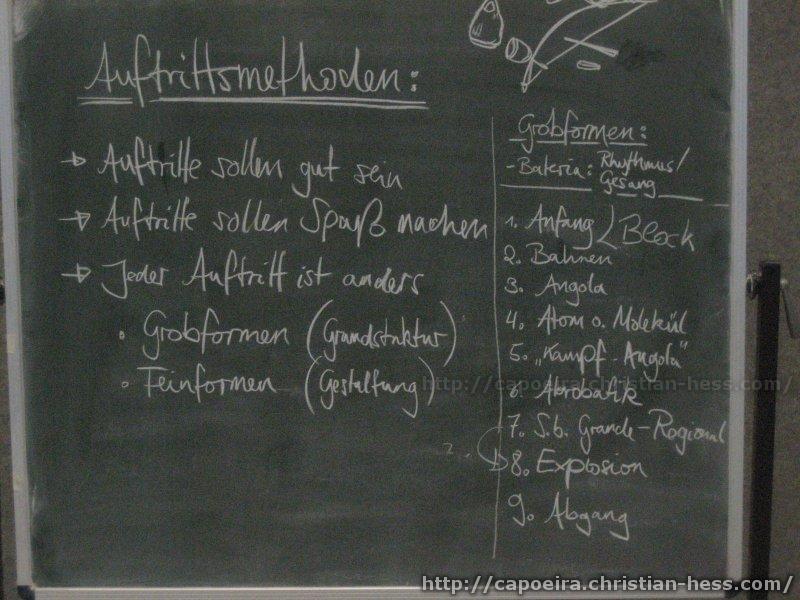 Auftrittsmethoden:
→ Auftritte sollen gut sein
→ Auftritte sollen Spaß machen
→ Jeder Auftritt ist anders
• Grobformen (Grundstruktur)
• Feinformen (Gestaltung)
Grobformen:
- Bateria: Rhythmus/
Gesang
1. Anfang / Block
2. Bahnen
3. Angola
4. Atom o. Molekül
5. „Kampf-Angola"
6. Akrobatik
7. S.b. Grande-Regional
8. Explosion
9. Abgang
http://capoeira.christian-hess.com/
http://capoeira.christian-hess.com/